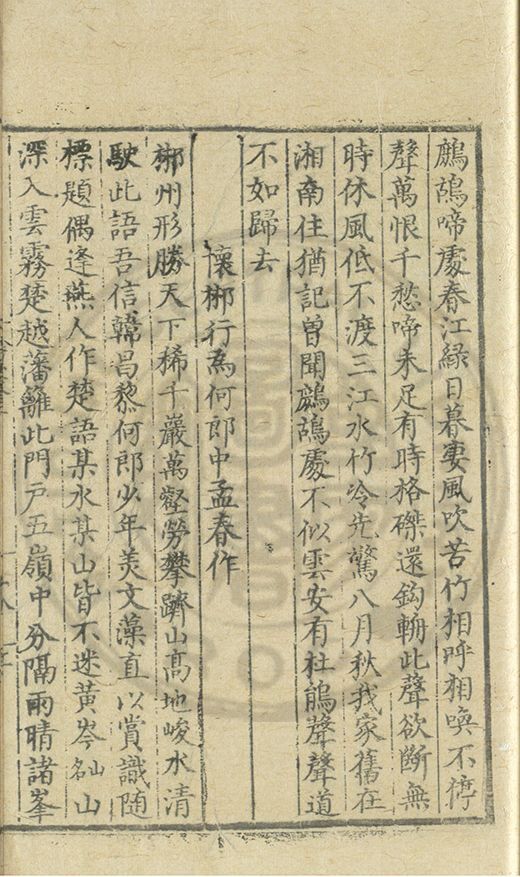 鷓鴣啼處春江緑日暮凄風吹苦竹相呼相喚不停
聲萬恨千愁啼未足有時格磔還鈎輈此聲欲斷無
時休風低不渡三江水竹冷先驚八月秋我家舊在
湘南住猶記曽聞鷓鴣處不似雲安有杜鵑聲聲道
不如歸去
懷郴行為何郎中孟春作
郴州形勝天下稀千巖萬壑勞攀躋山髙地峻水清
駛此語吾信韓昌黎何郎少年美文藻直以賞識随
標題偶逢燕人作楚語某水某山皆不迷黃岑山名山
深入雲霧楚越藩籬此門戸五嶺中分隔雨晴諸峯